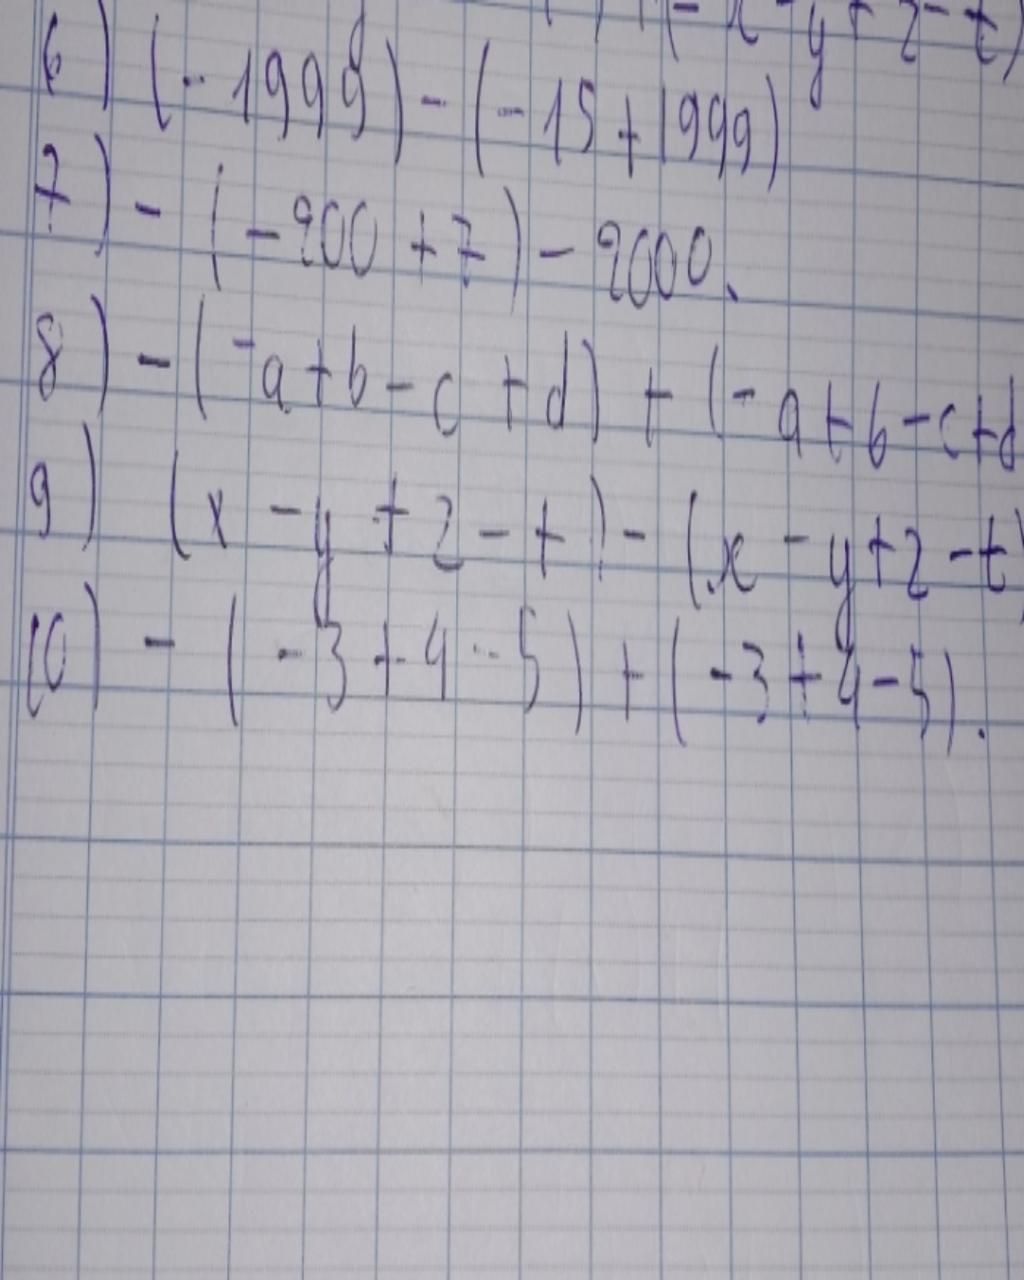 (-x-y+z-t)
6) (-1999) - (-15+1999)
7) - (-200 +7) - 2000.
8) - (-a+b-c+d) + (-a+b-c+d
9) (x-y+z-t) - (x-y+z-t)
10) - (-3+4-5) + (-3+4-5).